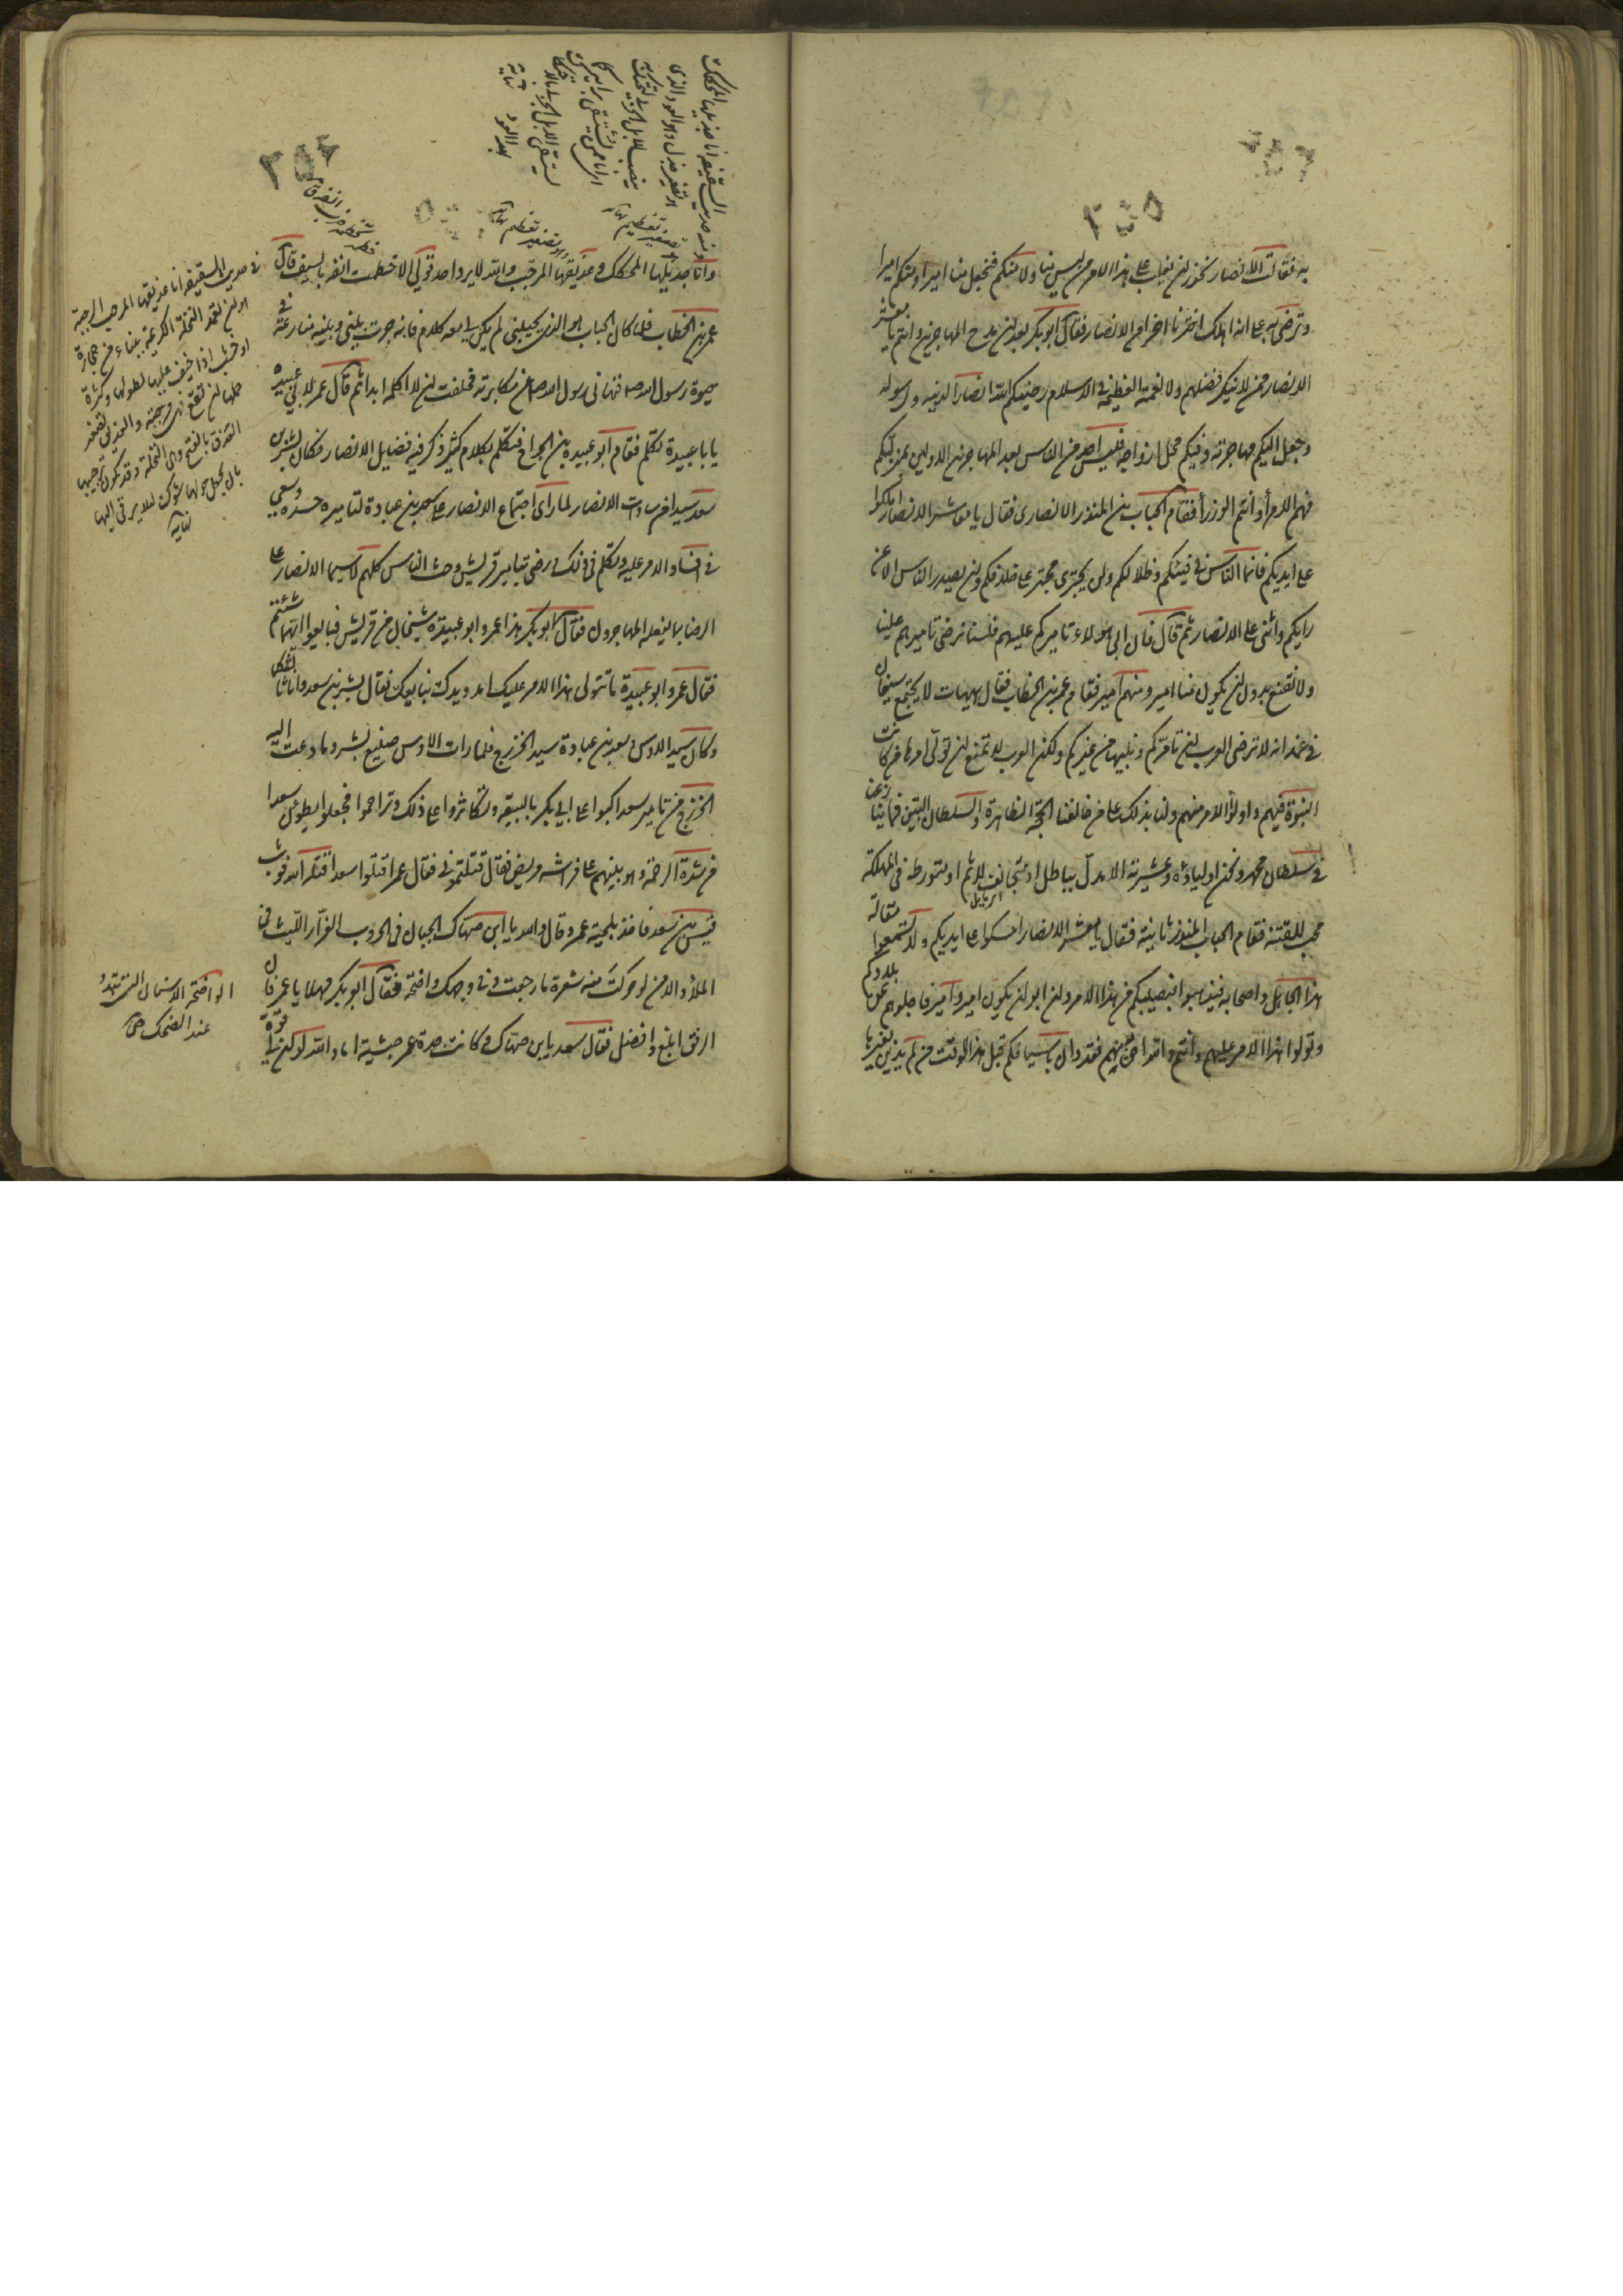 ٢٥٥
به فقالت الانصار نحذر ان يغلب على هذا الامر من ليس منا ولا منكم فنجعل منا اميرا ومنكم اميرا
ونرضى به على انه ان هلك اخترنا اخر من الانصار فقال ابو بكر بعد ان مدح المهاجرين وانتم يا معشر
الانصار ممن لا ينكر فضلهم ولا نعمتهم العظيمة في الاسلام رضيكم الله انصارا لدينه ولرسوله
وجعل اليكم مهاجرته وفيكم محل ازواجه فليس احد من الناس بعد المهاجرين الاولين بمنزلتكم
فهم الامراء وانتم الوزراء فقام الحباب بن المنذر الانصاري فقال يا معشر الانصار املكوا
على ايديكم فانما الناس في فيئكم وظلالكم ولن يجترئ مجتر على خلافكم ولن يصدر الناس الا عن
رايكم واثنى على الانصار ثم قال فان ابى هولاء تاميركم عليهم فلسنا نرضى تاميرهم علينا
ولا نقنع بدون ان يكون منا امير ومنهم امير فقام عمر بن الخطاب فقال هيهات لا يجتمع سيفان
في غمد انه لا ترضى العرب ان تامركم ونبيها من غيركم ولكن العرب لا تمتنع ان تولى امرها من كانت
النبوة فيهم واولوا الامر منهم ولنا بذلك على من خالفنا الحجة الظاهرة والسلطان البين فما ينازعنا
في سلطان محمد ونحن اولياؤه وعشيرته الا مدل بباطل او متجانف لاثم او متورط في الهلكة
اي مايل
محب للفتنة فقام الحباب بن المنذر ثانية فقال يا معشر الانصار امسكوا على ايديكم ولا تسمعوا مقالة
هذا الجاهل واصحابه فيذهبوا بنصيبكم من هذا الامر وان ابوا ان يكون امير وامير فاجلوهم عن بلادكم
وتولوا هذا الامر عليهم وانتم والله احق به منهم فقد دان باسيافكم قبل هذا الوقت من لم يكن يدين بغيرها
وانا جذيلها المحكك وعذيقها المرجب والله لا يرد احد قولي الا حطمت انفه بالسيف قال
عمر بن الخطاب فلما كان الحباب هو الذي يجيبني لم يكن لي معه كلام فانه جرت بيني وبينه منازعة في
حيوة رسول الله ص فنهاني رسول الله ص عن مكابرته فحلفت ان لا اكلمه ابدا ثم قال عمر لابي عبيدة
يا با عبيدة تكلم فقام ابو عبيدة بن الجراح فتكلم بكلام كثير وذكر فيه فضايل الانصار فكان بشير بن
سعد سيدا من سادات الانصار لما راى اجتماع الانصار على سعد بن عبادة لتاميره حسده وسعى
في افساد الامر عليه وتكلم في ذلك ورضي بتامير قريش وحث الناس كلهم لا سيما الانصار على
الرضا بما يفعله المهاجرون فقال ابو بكر هذا عمر وابو عبيدة شيخان من قريش فبايعوا ايهما شئتم
فقال عمر وابو عبيدة ما نتولى هذا الامر عليك امدد يدك نبايعك فقال بشير بن سعد وانا ثالثكما
وكان سيد الاوس وسعد بن عبادة سيد الخزرج فلما رات الاوس صنيع بشير وما دعت اليه
الخزرج من تامير سعد اكبوا على ابي بكر بالبيعة وتكاثروا على ذلك وتزاحموا فجعلوا يطؤن سعدا
من شدة الزحمة وهو بينهم على فراشه مريض فقال قتلتموني فقال عمر اقتلوا سعدا قتله الله فوثب
قيس بن سعد فاخذ بلحية عمر وقال والله يا ابن صهاك الجبان في الحروب الفرار الليث في
الملا والامن لو حركت منه شعرة ما رجعت وفي وجهك واضحة فقال ابو بكر مهلا يا عمر فان
الرفق ابلغ وافضل فقال سعد يا بن صهاك وكانت جدة عمر حبشية اما والله لو ان لي قوة
الواضحة الاسنان التي تبدو
عند الضحك ص
في حديث السقيفة انا عذيقها المرجب الرجبة
هو ان تعمد النخلة الكريمة ببناء من حجارة
او خشب اذا خيف عليها لطولها وكثرة
حملها ان تقع فهي مرجبة والعذيق تصغير
العذق بالفتح وهي النخلة وقد يكون ترجيبها
بان يجعل حولها شوك لئلا يرقى اليها
نهاية